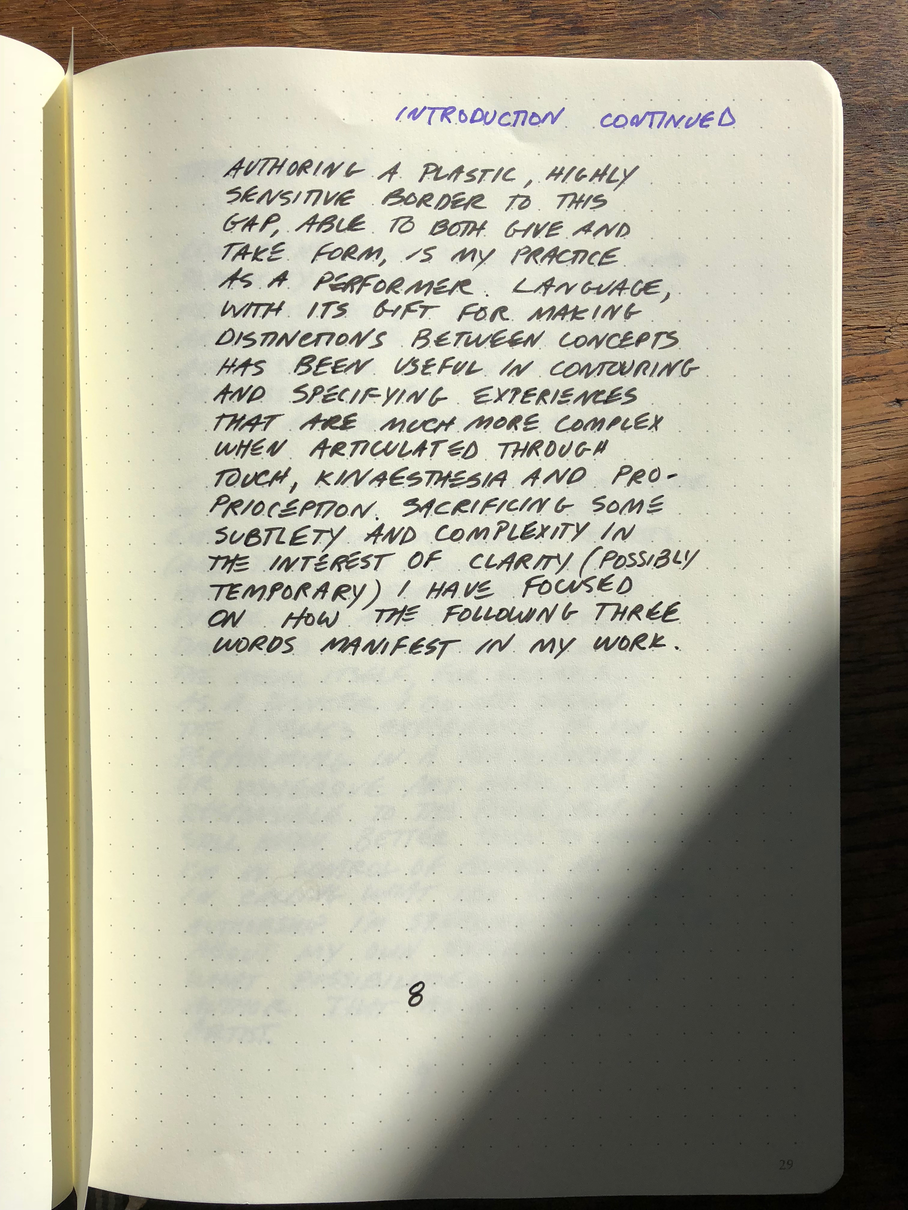 INTRODUCTION CONTINUED
AUTHORING A PLASTIC, HIGHLY
SENSITIVE BORDER TO THIS
GAP, ABLE TO BOTH GIVE AND
TAKE FORM, IS MY PRACTICE
AS A PERFORMER. LANGUAGE,
WITH ITS GIFT FOR MAKING
DISTINCTIONS BETWEEN CONCEPTS
HAS BEEN USEFUL IN CONTOURING
AND SPECIFYING EXPERIENCES
THAT ARE MUCH MORE COMPLEX
WHEN ARTICULATED THROUGH
TOUCH, KINAESTHESIA AND PRO-
PRIOCEPTION. SACRIFICING SOME
SUBTLETY AND COMPLEXITY IN
THE INTEREST OF CLARITY (POSSIBLY
TEMPORARY) I HAVE FOCUSED
ON HOW THE FOLLOWING THREE
WORDS MANIFEST IN MY WORK.
8
29